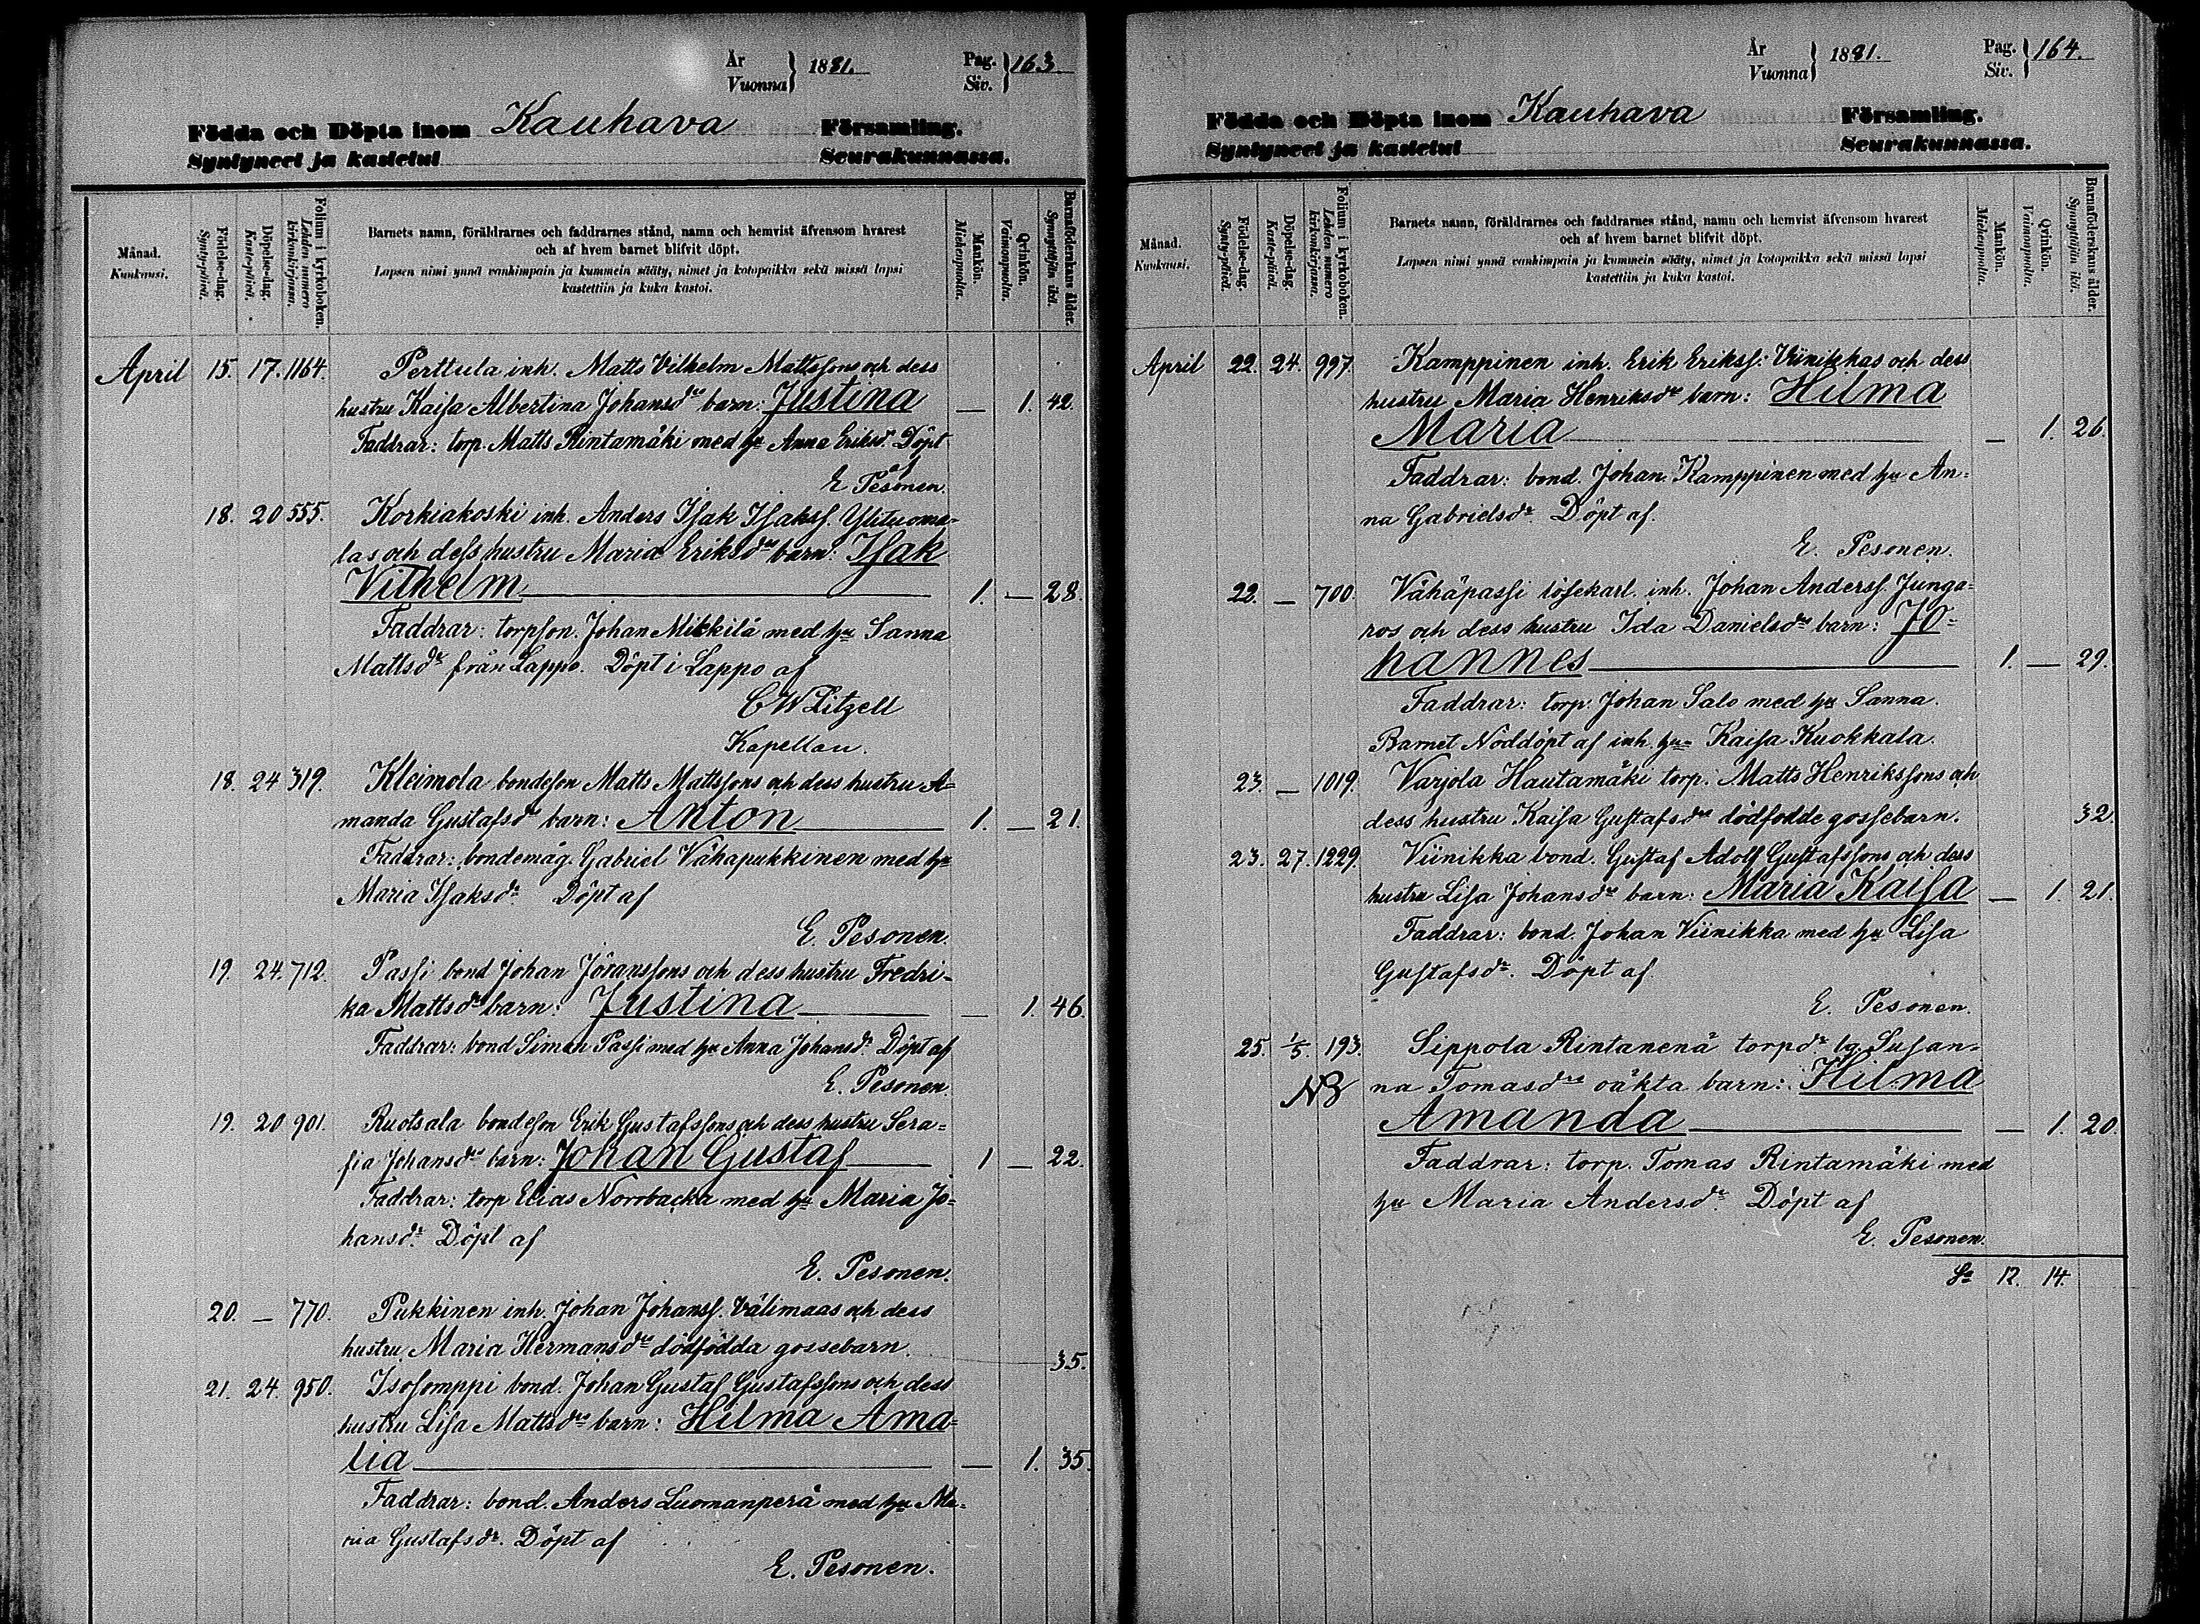 År
Vuonna } 1881. Pag.
Siv. } 163
Födda och Döpta inom Kauhava Församling.
Syntyneet ja kastetut Seurakunnassa.
Månad.
Kuukausi.
Födelse-dag.
Synty-päivä.
Döpelse-dag.
Kaste-päivä.
Folium i kyrkoboken.
Lehden numero kirkonkirjassa.
Barnets namn, föräldrarnes och faddrarnes stånd, namn och hemvist äfvensom hvarest
och af hvem barnet blifvit döpt.
Lapsen nimi ynnä vanhimpain ja kummein sääty, nimet ja kotopaikka sekä missä lapsi
kastettiin ja kuka kastoi.
Mankön.
Miehenpuolta.
Qvinkön.
Vaimonpuolta.
Barnaföderskans ålder.
Synnyttäjän ikä.
April 15. 17. 1164. Perttula inh. Matts Vilhelm Mattssons och dess
hustru Kaisa Albertina Johansdrs barn: Justina — 1. 42.
Faddrar: torp. Matts Rintamäki med hu Anna Eriksdr Döpt
af
E Pesonen.
18. 20 555. Korkiakoski inh. Anders Isak Isakss. Ylituoma-
las och dess hustru Maria Eriksdrs barn: Isak
Vilhelm 1. — 28.
Faddrar: torpson. Johan Mikkilä med hu Sanna
Mattsdr från Lappo. Döpt i Lappo af
C W Litzell
Kapellan.
18. 24 319. Kleimola bondeson Matts Mattssons och dess hustru A-
manda Gustafsdrs barn: Anton 1. — 21.
Faddrar: bondemåg. Gabriel Vähäpukkinen med hu
Maria Isaksdr Döpt af
E. Pesonen.
19. 24. 712. Passi bond Johan Jöranssons och dess hustru Fredri-
ka Mattsdrs barn: Justina — 1. 46.
Faddrar: bond Simon Passi med hu Anna Johansdr. Döpt af
E. Pesonen.
19. 20 901. Ruotsala bondeson Erik Gustafssons och dess hustru Sera-
fia Johansdrs barn: Johan Gustaf 1 — 22.
Faddrar: torp Elias Norrbacka med hu Maria Jo-
hansdr. Döpt af
E. Pesonen.
20. — 770. Pukkinen inh. Johan Johanss. Välimaas och dess
hustru Maria Hermansdrs dödfödda gossebarn. 35.
21. 24. 950. Isosomppi bond. Johan Gustaf Gustafssons och dess
hustru Lisa Mattsdrs barn: Hilma Ama-
lia — 1. 35.
Faddrar: bond. Anders Luomanperä med hu Ma-
ria Gustafsdr. Döpt af
E. Pesonen.
År
Vuonna } 1881. Pag.
Siv. } 164.
Födda och Döpta inom Kauhava Församling.
Syntyneet ja kastetut Seurakunnassa.
Månad.
Kuukausi.
Födelse-dag.
Synty-päivä.
Döpelse-dag.
Kaste-päivä.
Folium i kyrkoboken.
Lehden numero kirkonkirjassa.
Barnets namn, föräldrarnes och faddrarnes stånd, namn och hemvist äfvensom hvarest
och af hvem barnet blifvit döpt.
Lapsen nimi ynnä vanhimpain ja kummein sääty, nimet ja kotopaikka sekä missä lapsi
kastettiin ja kuka kastoi.
Mankön.
Miehenpuolta.
Qvinkön.
Vaimonpuolta.
Barnaföderskans ålder.
Synnyttäjän ikä.
April 22. 24. 997. Kamppinen inh. Erik Erikss. Viinikkas och dess
hustru Maria Henriksdrs barn: Hilma
Maria — 1. 26.
Faddrar: bond. Johan Kamppinen med hu An-
na Gabrielsdr. Döpt af.
E. Pesonen.
22. — 700. Vähäpassi lösekarl. inh. Johan Anderss. Junga-
ros och dess hustru Ida Danielsdrs barn: Jo-
hannes 1. — 29.
Faddrar: torp. Johan Salo med hu Sanna.
Barnet Nöddöpt af inh. hu Kaisa Kuokkala.
23. — 1019. Varjola Hautamäki torp. Matts Henrikssons och
dess hustru Kaisa Gustafsdrs dödfödde gossebarn. 32
23. 27. 1229. Viinikka bond. Gustaf Adolf Gustafssons och dess
hustru Lisa Johansdrs barn: Maria Kaisa — 1. 21.
Faddrar: bond. Johan Viinikka med hu Lisa
Gustafsdr. Döpt af.
E. Pesonen.
25. 1/5. 193. Sippola Rintanenä torpdr. lg. Susan-
NB na Tomasdrs oäkta barn: Hilma
Amanda — 1. 20.
Faddrar: torp. Tomas Rintamäki med
hu Maria Andersdr. Döpt af
E. Pesonen.
Sa 12. 14.